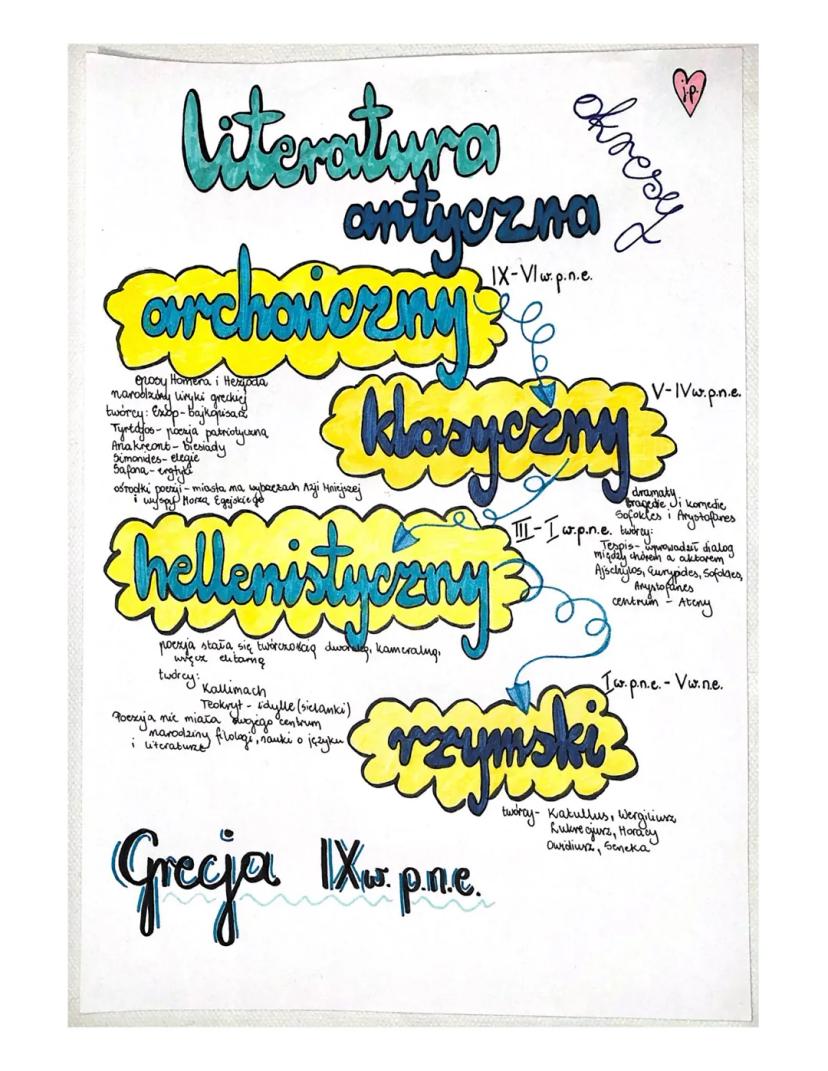 literatura
antyczna
okresy
j.p.
archaiczny
IX-VI w. p.n.e.
eposy Homera i Hezjoda
narodziny liryki greckiej
twórcy: Ezop - bajkopisarz
Tyrteos - poezja patriotyczna
Anakreont - biesiady
Simonides - elegie
Safona - erotyki
ośrodki poezji - miasta na wybrzeżach Azji Mniejszej
i wyspy Morza Egejskiego
klasyczny
V-IV w. p.n.e.
dramaty
tragedie i komedie
Sofokles i Arystofanes
twórcy:
Tespis - wprowadził dialog
między chórem a aktorem
Ajschylos, Eurypides, Sofokles,
Arystofanes
centrum - Ateny
hellenistyczny
III-I w. p.n.e.
poezja stała się twórczością dworską, kameralną,
wręcz elitarną
twórcy:
Kallimach
Teokryt - idylle (sielanki)
Poezja nie miała swojego centrum
narodziny filologi, nauki o języku
i literaturze
rzymski
I w. p.n.e. - V w. n.e.
twórcy - Katullus, Wergiliusz
Lukrecjusz, Horacy
Owidiusz, Seneka
Grecja IX w. p.n.e.